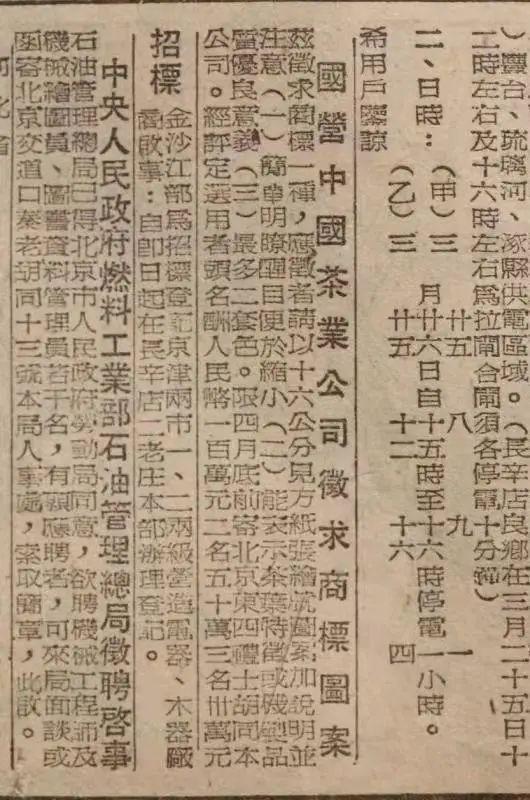 ）豐台、琉璃河、涿縣供電區域。（長辛店良鄉在三月二十五日十
二時左右及十六時左右爲拉閘合閘須各停電十分鐘）
二、日時：（甲）三月廿五日自八時至九時停電一小時。
（乙）三月廿六日自十五時至十六時停電一小時。
希用戶鑒諒
國營中國茶業公司徵求商標圖案
茲徵求商標一種，應徵者請以十六公分見方紙張繪就圖案加說明並
注意（一）簡單明瞭醒目便於縮小（二）能表示茶葉特徵或磯製品
質優良意義（三）最多二套色。限四月底前寄北京東四禮士胡同本
公司。經評定選用者頭名酬人民幣一百萬元二名五十萬三名卅萬元
招標
金沙江部爲招標登記京津兩市一、二兩級營造電器、木器廠
商啟事：自即日起在長辛店二老庄本部辦理登記。
中央人民政府燃料工業部石油管理總局徵聘啓事
石油管理總局已得北京市人民政府勞動局同意，欲聘機械工程師及
機械繪圖員、圖書資料管理員若干名，有願應聘者，可來局面談或
函寄北京交道口秦老胡同十三號本局人事處，索取簡章，此啟。